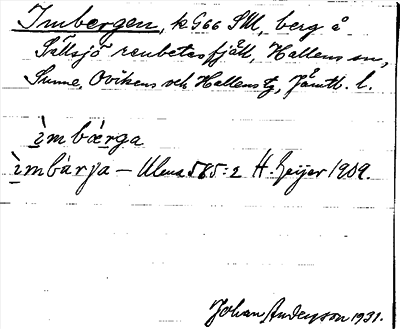 Imbergen, k G66 SM, berg å
Sällsjö renbetesfjäll, Hallens sn,
Sunne, Ovikens och Hallens tg, Jämtl. l.
ìmbærga
ìmbárja – Ulma 585:2 H. Geijer 1909.
Johan Anderson 1931.